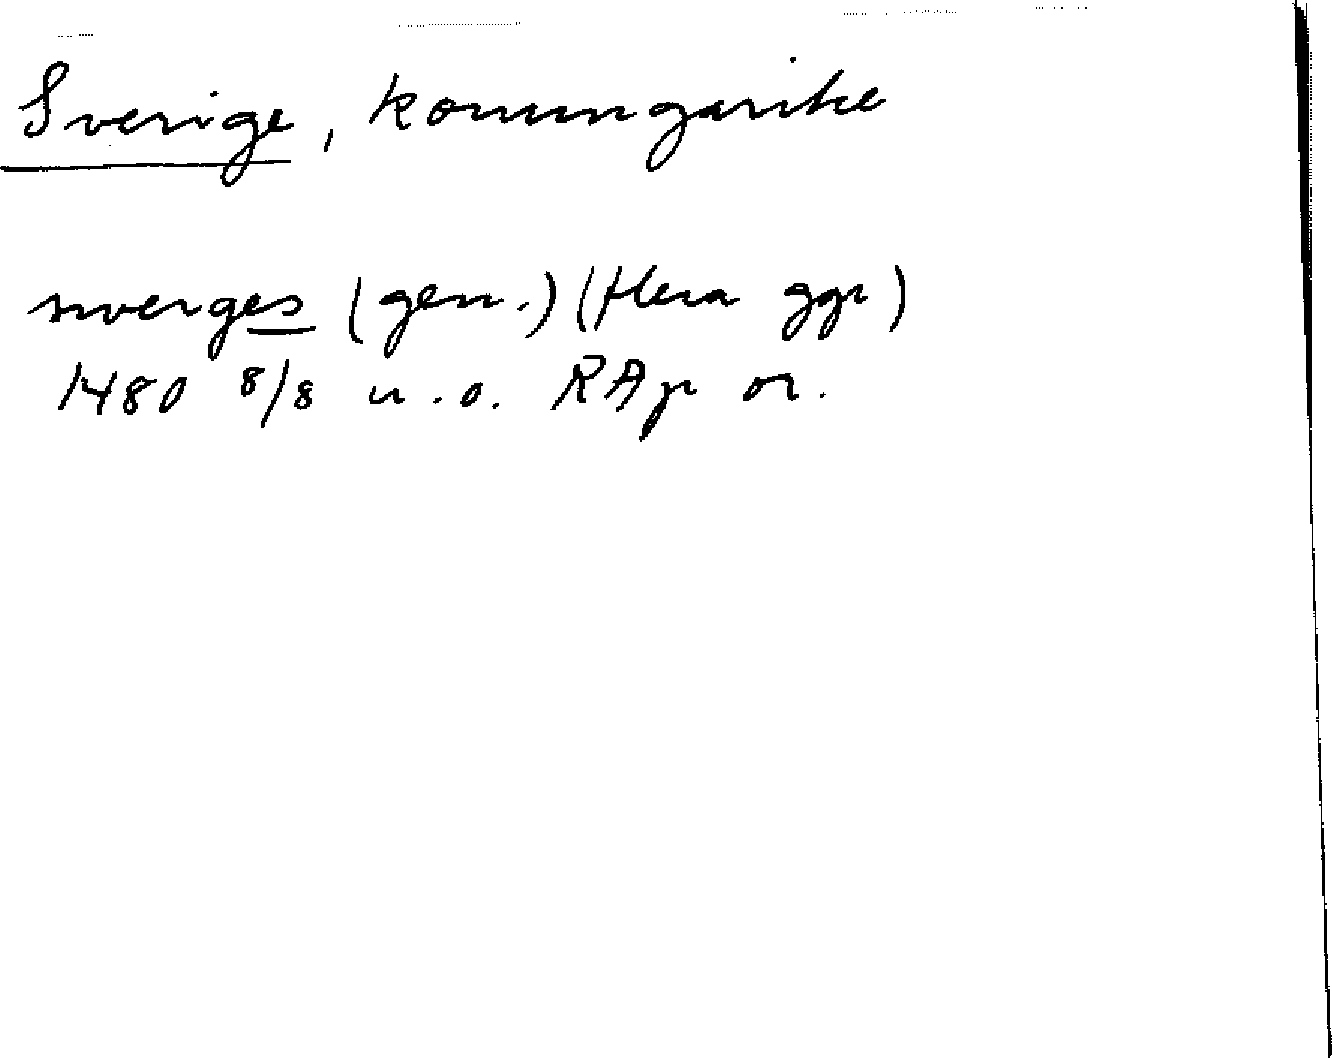 Sverige, konungarike
swerges (gen.) (flera ggr)
1480 8/8 u.o. RAp or.